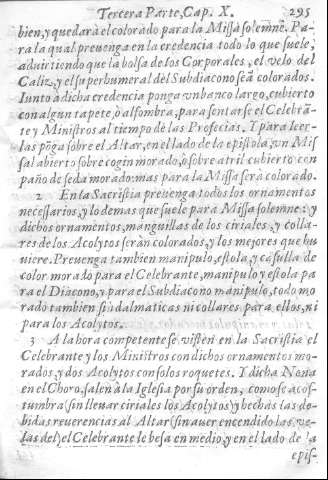 Tercera Parte, Cap. X. 295
bien, y quedarà el colorado para la Missa solemnẽ. Pa-
ra la qual preuenga en la credencia todo lo que suele;
aduirtiendo que la bolsa de los Corporales, el velo del
Caliz, y el superhumeral del Subdiacono seã colorados.
Iunto à dicha credencia ponga vn banco largo, cubierto
con algun tapete, ò alfombra, para sentarse el Celebrã-
te y Ministros al tiempo de las Profecias. Y para leer-
las põga sobre el Altar, en el lado de la epistola, vn Mis
sal abierto sobre cogin morado, ò sobre atril cubierto con
paño de seda morado: mas para la Missa serà colorado.
2 En la Sacristia preuenga todos los ornamentos
necessarios, y lo demas que suele para Missa solemne: y
dichos ornamentos, manguillas de los ciriales, y colla-
res de los Acolytos seràn colorados, y los mejores que hu
uiere. Preuenga tambien manipulo, estola, y casulla de
color morado para el Celebrante, manipulo y estola pa
ra el Diacono, y para el Subdiacono manipulo, todo mo
rado tambien sin dalmaticas ni collares para ellos, ni
para los Acolytos.
3 A la hora competente se visten en la Sacristia el
Celebrante y los Ministros con dichos ornamentos mo-
rados, y dos Acolytos con solos roquetes. Y dicha Nona
en el Choro, salen à la Iglesia por su orden, como se acos-
tumbra (sin lleuar ciriales los Acolytos) y hechas las de-
bidas reuerencias al Altar (sin auer encendido las ve-
las del) el Celebrante le besa en medio, y en el lado de la
epis-